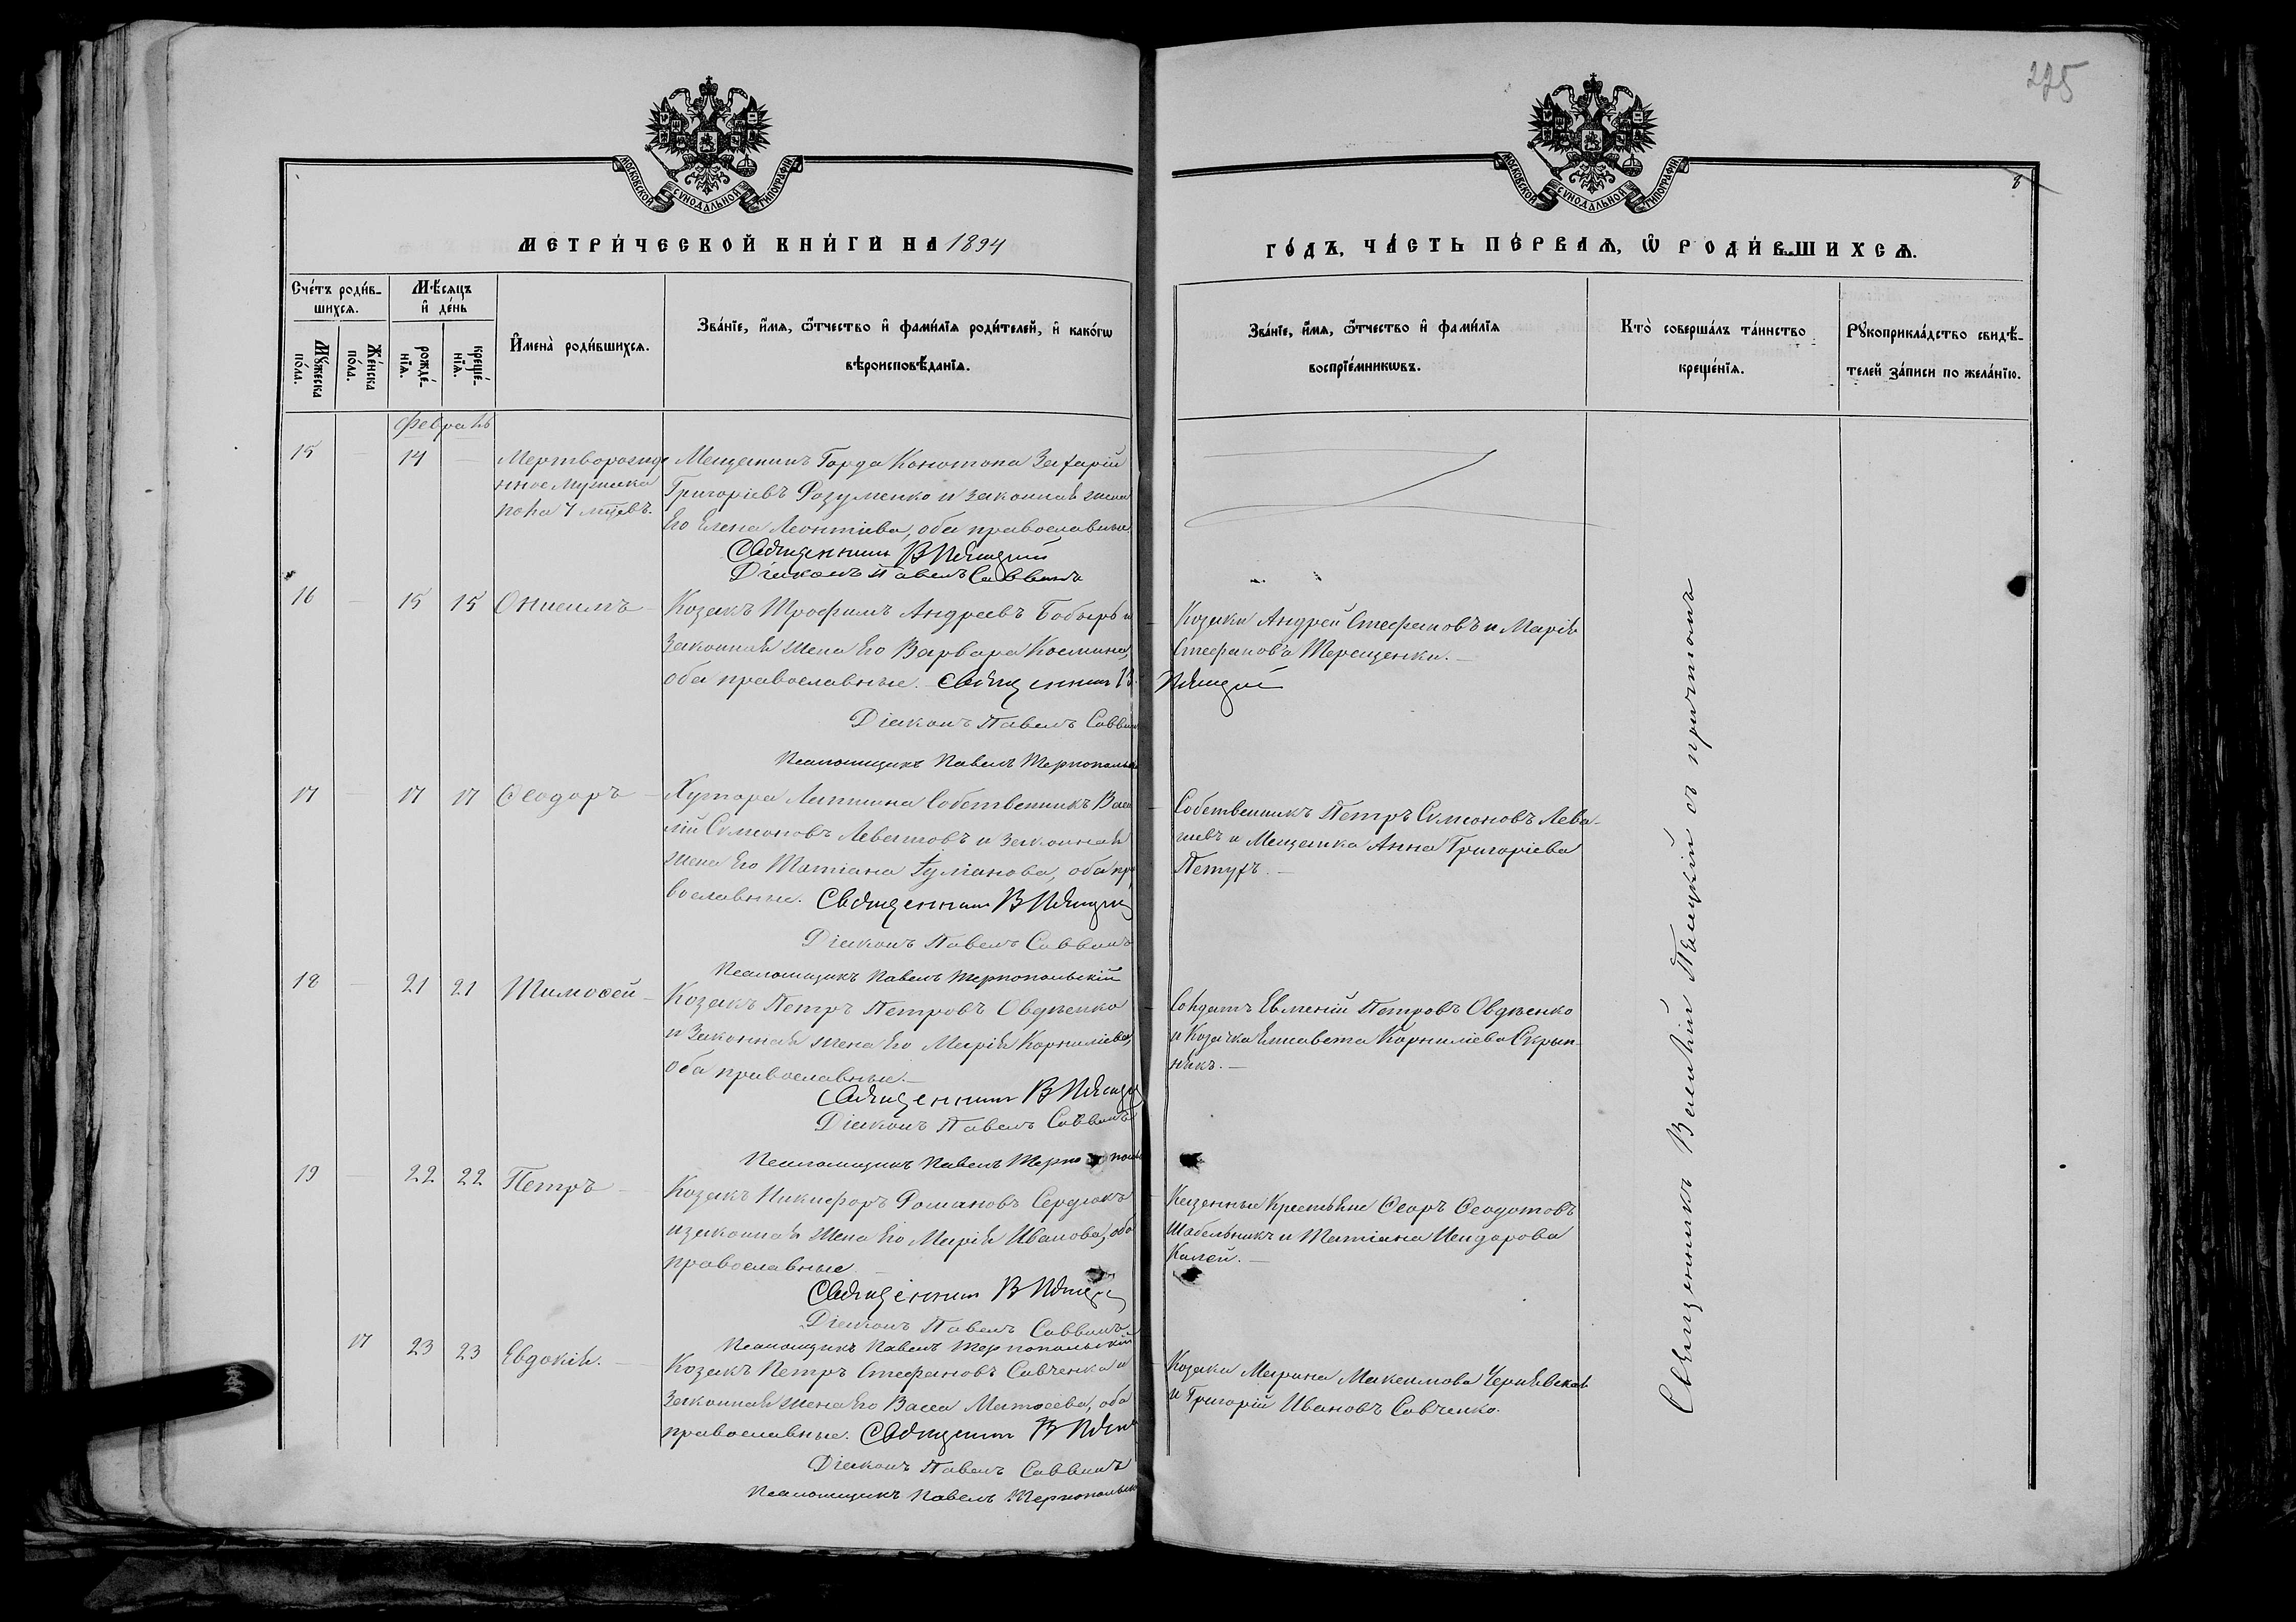 275
8
МОСКОВСКОЙ СѴНОДАЛЬНОЙ ТИПОГРАФІИ
МОСКОВСКОЙ СѴНОДАЛЬНОЙ ТИПОГРАФІИ
МЕТРИ́ЧЕСКОЙ КНИ́ГИ НА 1894
ГО́ДЪ, ЧА́СТЬ ПЕ́РВАѦ, Ѽ РОДИ́ВШИХСѦ.
Сче́тъ роди́в-
шихсѧ.
Мꙋ́жеска по́ла.
Же́нска по́ла.
Мѣ́сѧцъ
и҆ де́нь
рожде́-нїѧ.
креще́-нїѧ.
И҆мена̀ роди́вшихсѧ.
Зва́нїе, и҆́мѧ, ѻ҆́тчество и҆ фами́лїѧ роди́телей, и҆ како́гѡ
вѣроисповѣ́данїѧ.
Зва́нїе, и҆́мѧ, ѻ҆́тчество и҆ фами́лїѧ
воспрїе́мникѡвъ.
Кто̀ соверша́лъ та́инство
креще́нїѧ.
Рꙋкоприкла́дство свидѣ́-
телей за́писи по жела́нїю.
Февраль
15 — 14 — Мертворожде
нное мужска
пола 7 мцевъ.
Мещанинъ Города Конотопа Захарій
Григоріевъ Розуменко и законная жена
Его Елена Леонтіева, оба православные
Священникъ В Пѣшцкій
Діаконъ Павелъ Саввинъ
16 — 15 15 Онисимъ
Козакъ Трофимъ Андреевъ Бобырь и
Законная жена Его Варвара Космина,
оба православные. — Священникъ В.
Діаконъ Павелъ Саввинъ
Псаломщикъ Павелъ Тернопольскій
Козаки Андрей Стефановъ и Марія
Стефанов'а Терещенки. —
17 — 17 17 Ѳеодоръ
Хутора Лапшина Собственникъ Васи
лій Симеоновъ Левашовъ и законная
жена Его Татіана Іуліанова, оба пра
вославные. Священникъ В
Діаконъ Павелъ Саввинъ
Псаломщикъ Павелъ Тернопольскій
Собственникъ Петръ Симеоновъ Лева-
шевъ и Мещанка Анна Григоріева
Петухъ. —
18 — 21 21 Тимоѳей
Козакъ Петръ Петровъ Овдѣенко
и Законная жена Его Марія Корниліева,
оба православные. —
Священникъ В
Діаконъ Павелъ Саввинъ
Псаломщикъ Павелъ Тернопольскій
Солдатъ Евменій Петровъ Овдѣенко
и Козачка Елисавета Корниліева Скрып-
никъ. —
19 — 22 22 Петръ
Козакъ Никифоръ Романовъ Сердюкъ
и законная жена Его Марія Иванова, оба
православные
Священникъ В
Діаконъ Павелъ Саввинъ
Псаломщикъ Павелъ Тернопольскій
Казенные Крестьяне Ѳеоръ Ѳеодотовъ
Шабельникъ и Татіана Исидорова
Калей. —
17 23 23 Евдокія.
Козакъ Петръ Стефановъ Савченко и
законная жена Его Васса Матѳеева, оба
православные. Священникъ В
Діаконъ Павелъ Саввинъ
Псаломщикъ Павелъ Тернопольскій
Козаки Марина Максимова Чернявская
и Григорій Ивановъ Савченко.
Священникъ Василій съ причтомъ